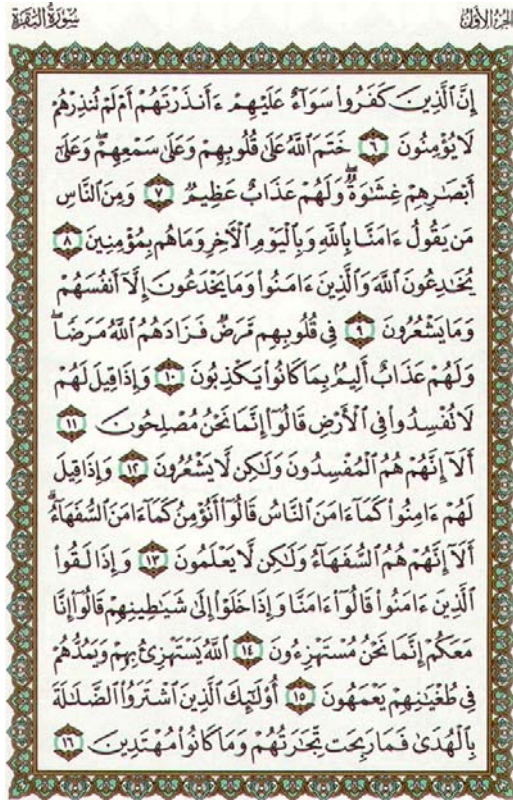 الجزء الأول
سورة البقرة
إِنَّ ٱلَّذِينَ كَفَرُوا۟ سَوَآءٌ عَلَيْهِمْ ءَأَنذَرْتَهُمْ أَمْ لَمْ تُنذِرْهُمْ
لَا يُؤْمِنُونَ ٦ خَتَمَ ٱللَّهُ عَلَىٰ قُلُوبِهِمْ وَعَلَىٰ سَمْعِهِمْ ۖ وَعَلَىٰٓ
أَبْصَـٰرِهِمْ غِشَـٰوَةٌ ۖ وَلَهُمْ عَذَابٌ عَظِيمٌ ٧ وَمِنَ ٱلنَّاسِ
مَن يَقُولُ ءَامَنَّا بِٱللَّهِ وَبِٱلْيَوْمِ ٱلْأَخِرِ وَمَا هُم بِمُؤْمِنِينَ ٨
يُخَـٰدِعُونَ ٱللَّهَ وَٱلَّذِينَ ءَامَنُوا۟ وَمَا يَخْدَعُونَ إِلَّآ أَنفُسَهُمْ
وَمَا يَشْعُرُونَ ٩ فِى قُلُوبِهِم مَّرَضٌ فَزَادَهُمُ ٱللَّهُ مَرَضًا ۖ
وَلَهُمْ عَذَابٌ أَلِيمٌۢ بِمَا كَانُوا۟ يَكْذِبُونَ ١٠ وَإِذَا قِيلَ لَهُمْ
لَا تُفْسِدُوا۟ فِى ٱلْأَرْضِ قَالُوٓا۟ إِنَّمَا نَحْنُ مُصْلِحُونَ ١١
أَلَآ إِنَّهُمْ هُمُ ٱلْمُفْسِدُونَ وَلَـٰكِن لَّا يَشْعُرُونَ ١٢ وَإِذَا قِيلَ
لَهُمْ ءَامِنُوا۟ كَمَآ ءَامَنَ ٱلنَّاسُ قَالُوٓا۟ أَنُؤْمِنُ كَمَآ ءَامَنَ ٱلسُّفَهَآءُ ۗ
أَلَآ إِنَّهُمْ هُمُ ٱلسُّفَهَآءُ وَلَـٰكِن لَّا يَعْلَمُونَ ١٣ وَإِذَا لَقُوا۟
ٱلَّذِينَ ءَامَنُوا۟ قَالُوٓا۟ ءَامَنَّا وَإِذَا خَلَوْا۟ إِلَىٰ شَيَـٰطِينِهِمْ قَالُوٓا۟ إِنَّا
مَعَكُمْ إِنَّمَا نَحْنُ مُسْتَهْزِءُونَ ١٤ ٱللَّهُ يَسْتَهْزِئُ بِهِمْ وَيَمُدُّهُمْ
فِى طُغْيَـٰنِهِمْ يَعْمَهُونَ ١٥ أُو۟لَـٰٓئِكَ ٱلَّذِينَ ٱشْتَرَوُا۟ ٱلضَّلَـٰلَةَ
بِٱلْهُدَىٰ فَمَا رَبِحَت تِّجَـٰرَتُهُمْ وَمَا كَانُوا۟ مُهْتَدِينَ ١٦